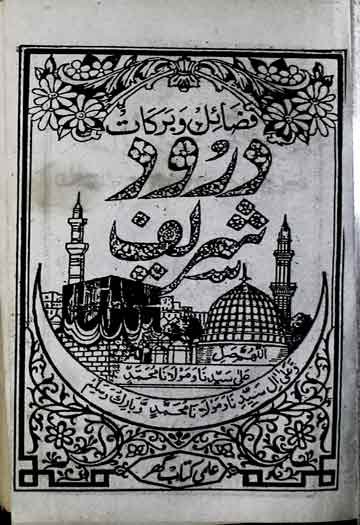 فضائل و برکات
درود
شریف
اللهم صل
علی سیدنا و مولانا محمد
و علی آل سیدنا و مولانا محمد و بارک وسلم
علمی کتاب گھر